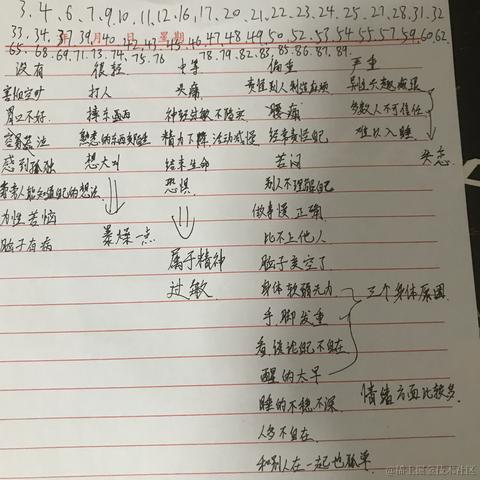 3. 4, 6, 7, 9, 10, 11, 12, 16, 17, 20, 21, 22, 23, 24, 25, 27, 28, 31, 32
33, 34, 39, 40, 42, 43, 45, 46, 47, 48, 49, 50, 52, 53, 54, 55, 57, 59, 60, 62,
年 月 日 星期
65. 68. 69. 71. 73. 74. 75. 76 78. 79. 82. 83. 85. 86. 87. 89.
没有 很轻 中等 偏重 严重
害怕空旷 打人 头痛 责怪别人制造麻烦 异性兴趣减退
胃口不好 摔东西 神经过敏不踏实 腰痛 多数人不可信任
容易哭泣 熟悉的东西 精力下降活动减慢 经常责怪自己 难以入睡
感到孤独 想大叫 结束生命 苦闷 失恋
旁人能知道自己的想法 恐惧 别人不理解自己
为性苦恼 做事慢 正确
脑子有病 暴燥一点 比不上他人
属于精神 脑子变空了
过敏 身体软弱无力 三个身体原因
手脚发重
看、谈论自己不自在
醒的太早
睡的不稳不深 情绪方面比较多
人多不自在
和别人在一起也孤单
@稀土掘金技术社区